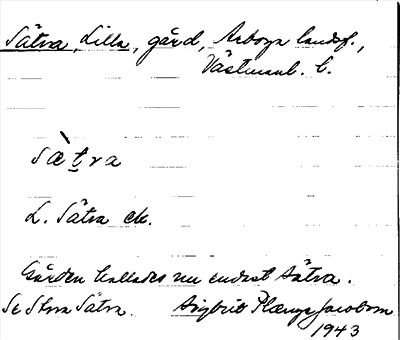 Sätra, Lilla, gård, Arboga landsf.,
Västmanl. l.
sæ̀t̠ra
L. Sätra ek.
Gården kallades nu endast Sätra.
Se Stora Sätra. Sigbrit Plænge Jacobson
1943